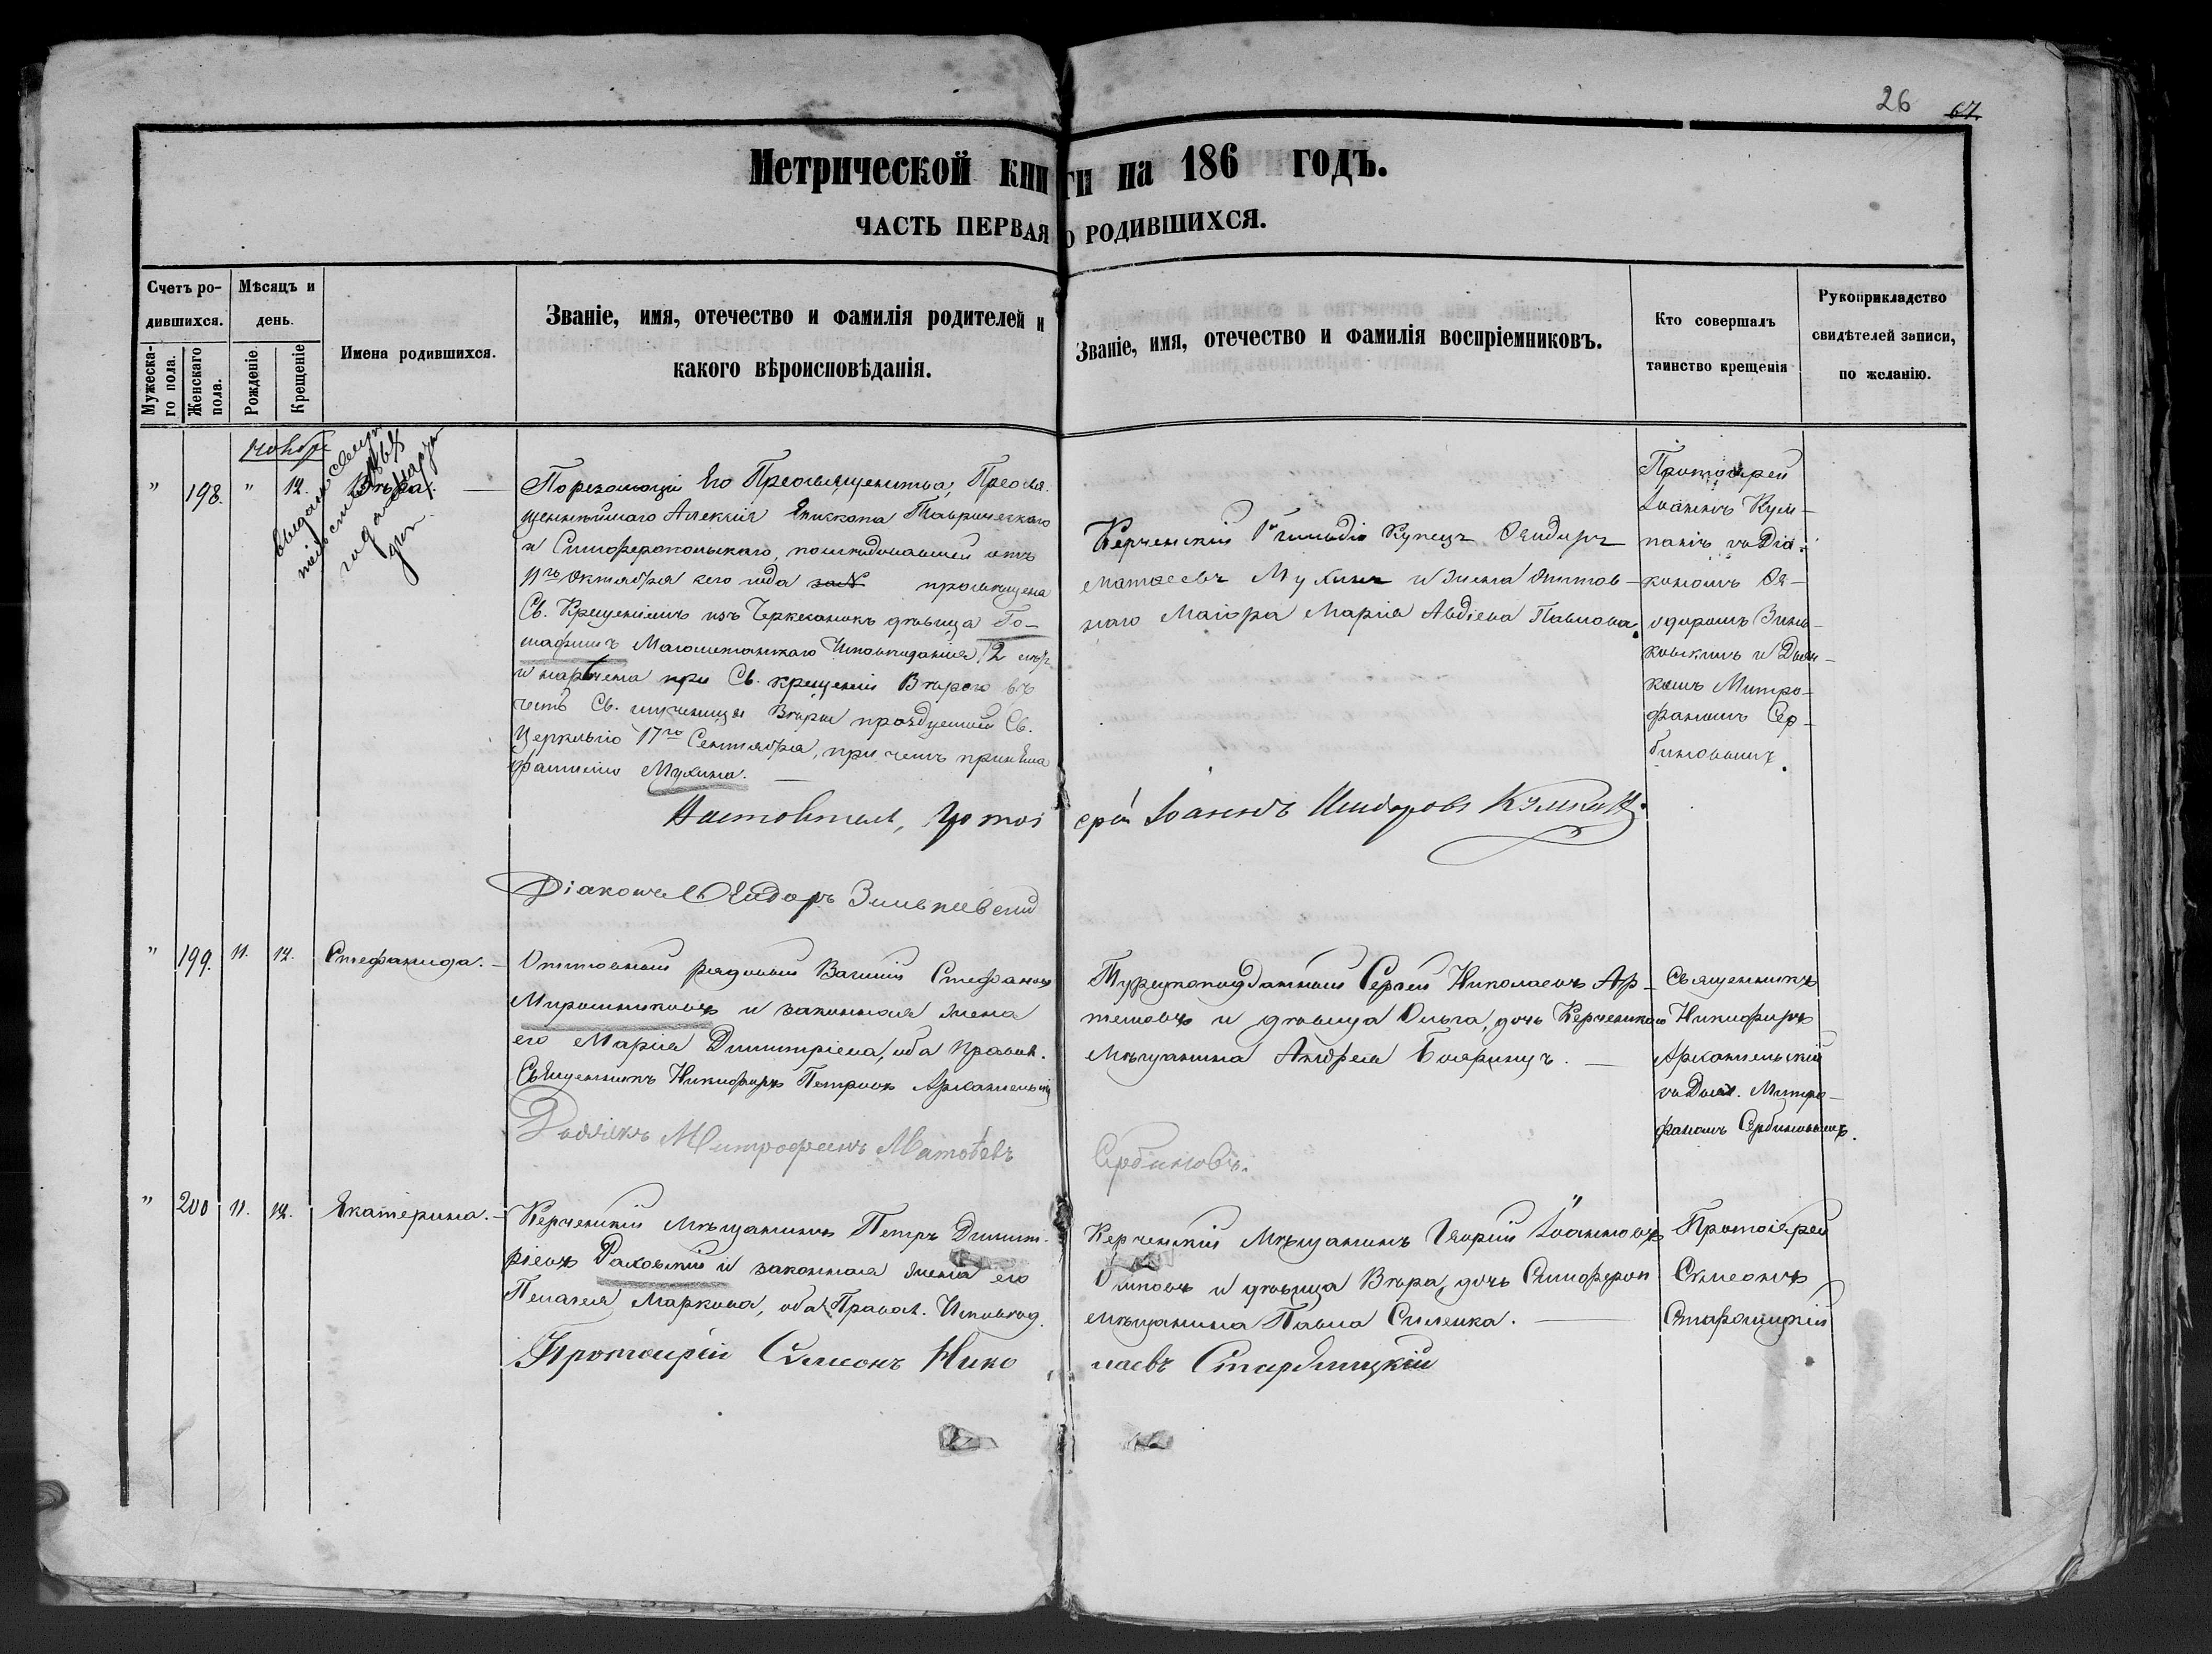 26 67.
Метрической книги на 186 годъ.
ЧАСТЬ ПЕРВАЯ О РОДИВШИХСЯ.
Счетъ родившихся.
Мужескаго пола.
Женскаго пола.
Мѣсяцъ и день.
Рожденіе.
Крещеніе
Имена родившихся.
Званіе, имя, отечество и фамилія родителей и
какого вѣроисповѣданія.
Званіе, имя, отечество и фамилія воспріемниковъ.
Кто совершалъ
таинство крещенія
Рукоприкладство
свидѣтелей записи,
по желанію.
ноябр
" 198. " 12. Вѣра.
По резолюціи Его Преосвященства, Преосвя-
щеннѣйшаго Алексія Епископа Таврическаго
и Симферопольскаго, послѣдовавшей отъ
11го Октября сего года за № просвѣщена
Св. Крещеніемъ изъ Черкешенокъ дѣвица Го-
Магометанскаго Исповѣданія, 12 лѣтъ
и наречена при Св. крещеніи Вѣрою въ
честь Св. мученицы Вѣры празднуемой Св.
Церковію 17го Сентября, при чемъ приняла
фамилію Мухина.
Керченскій гильдіи Купецъ Ѳеодоръ
Матвеевъ Мухинъ и жена отстав-
наго Маіора Марія Авдіева Павлова.
Протоіерей
Іоаннъ Кум-
паніъ съ Діа-
кономъ Ѳе-
одоромъ Зинь-
ковскимъ и Дьяч-
комъ Митро-
фаномъ Сер-
биновымъ.
Настоятель, Протоіерей Іоаннъ
Діаконъ Ѳеодоръ Зиньковскій
" 199. 11. 12. Стефанида.
Отставный рядовый Василій Стефановъ
Мирошниковъ и законная жена
его Марія Димитріева, оба Правосл.
Священникъ Никифоръ Петровъ Архангельскій
Дьячекъ Митрофанъ Матвѣевъ Сербиновъ.
Турецкоподданный Сергей Николаевъ Ар-
темовъ и дѣвица Ольга, дочь Керченскаго
Мѣщанина Андрея
Священникъ
Никифоръ
Архангельскій
съ Дьяч. Митро-
фаномъ Сербиновымъ.
" 200 11. 12. Екатерина.
Керченскій Мѣщанинъ Петръ Димит-
ріевъ Раковскій и законная жена его
Пелагея Маркова, оба Правосл. Исповѣд.
Керченскій Мѣщанинъ Георгій Іоанновъ
и дѣвица Вѣра, дочь Симфероп
мѣщанина Павла
Протоіерей
Симеонъ
Старолицкій
Протоіерей Симеонъ Николаевъ Старолицкій